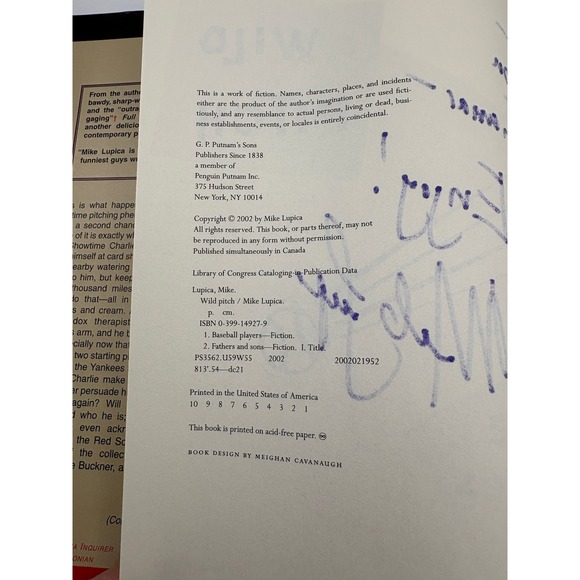 From the auth
bawdy, sharp-w
and the "outra
gaging"† Full
another delicio
contemporary p
"Mike Lupica is
funniest guys w
s is what happe
time pitching phe
a second chan
of it is exactly w
Showtime Charli
imself at card sh
earby watering
o him, but keep
thousand miles
do that—all in
s and cream.
dox therapist
s arm, and he b
cially now that
two starting p
the Yankees
Charlie make
er persuade h
again? Will
d who he is;
even ackr
the Red So
f the collec
e Buckner, a
(Co
A INQUIRER
ONIAN
WILD
This is a work of fiction. Names, characters, places, and incidents
either are the product of the author's imagination or are used ficti-
tiously, and any resemblance to actual persons, living or dead, busi-
ness establishments, events, or locales is entirely coincidental.
G. P. Putnam's Sons
Publishers Since 1838
a member of
Penguin Putnam Inc.
375 Hudson Street
New York, NY 10014
Copyright © 2002 by Mike Lupica
All rights reserved. This book, or parts thereof, may not
be reproduced in any form without permission.
Published simultaneously in Canada
Library of Congress Cataloging-in-Publication Data
Lupica, Mike.
Wild pitch / Mike Lupica.
p. cm.
ISBN 0-399-14927-9
1. Baseball players—Fiction.
2. Fathers and sons—Fiction. I. Title.
PS3562.U59W55 2002 2002021952
813'.54—dc21
Printed in the United States of America
10 9 8 7 6 5 4 3 2 1
This book is printed on acid-free paper. ♾
BOOK DESIGN BY MEIGHAN CAVANAUGH